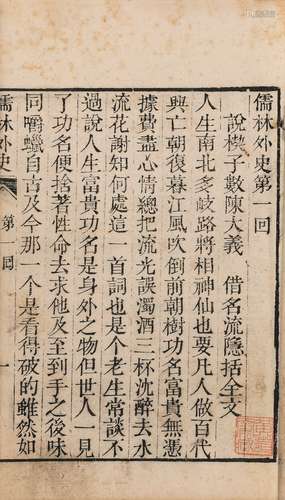 儒林外史第一回
說楔子敷陳大義　借名流隱括全文
人生南北多岐路將相神仙也要凡人做百代
興亡朝復暮江風吹倒前朝樹功名富貴無憑
據費盡心情總把流光誤濁酒三杯沈醉去水
流花謝知何處這一首詞也是個老生常談不
過說人生富貴功名是身外之物但世人一見
了功名便捨著性命去求他及至到手之後味
同嚼蠟自古及今那一個是看得破的雖然如
儒林外史
第一回
一